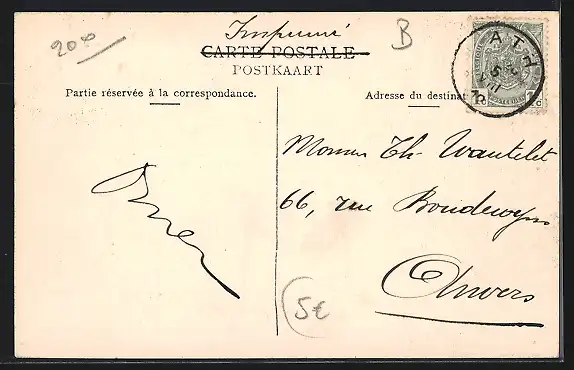 200
Imprimé
B
CARTE POSTALE
POSTKAART
ATH
Partie réservée à la correspondance.
Adresse du destinat
1c 1c
Th. Wautelet
66, rue Boudewyns
Anvers
5€